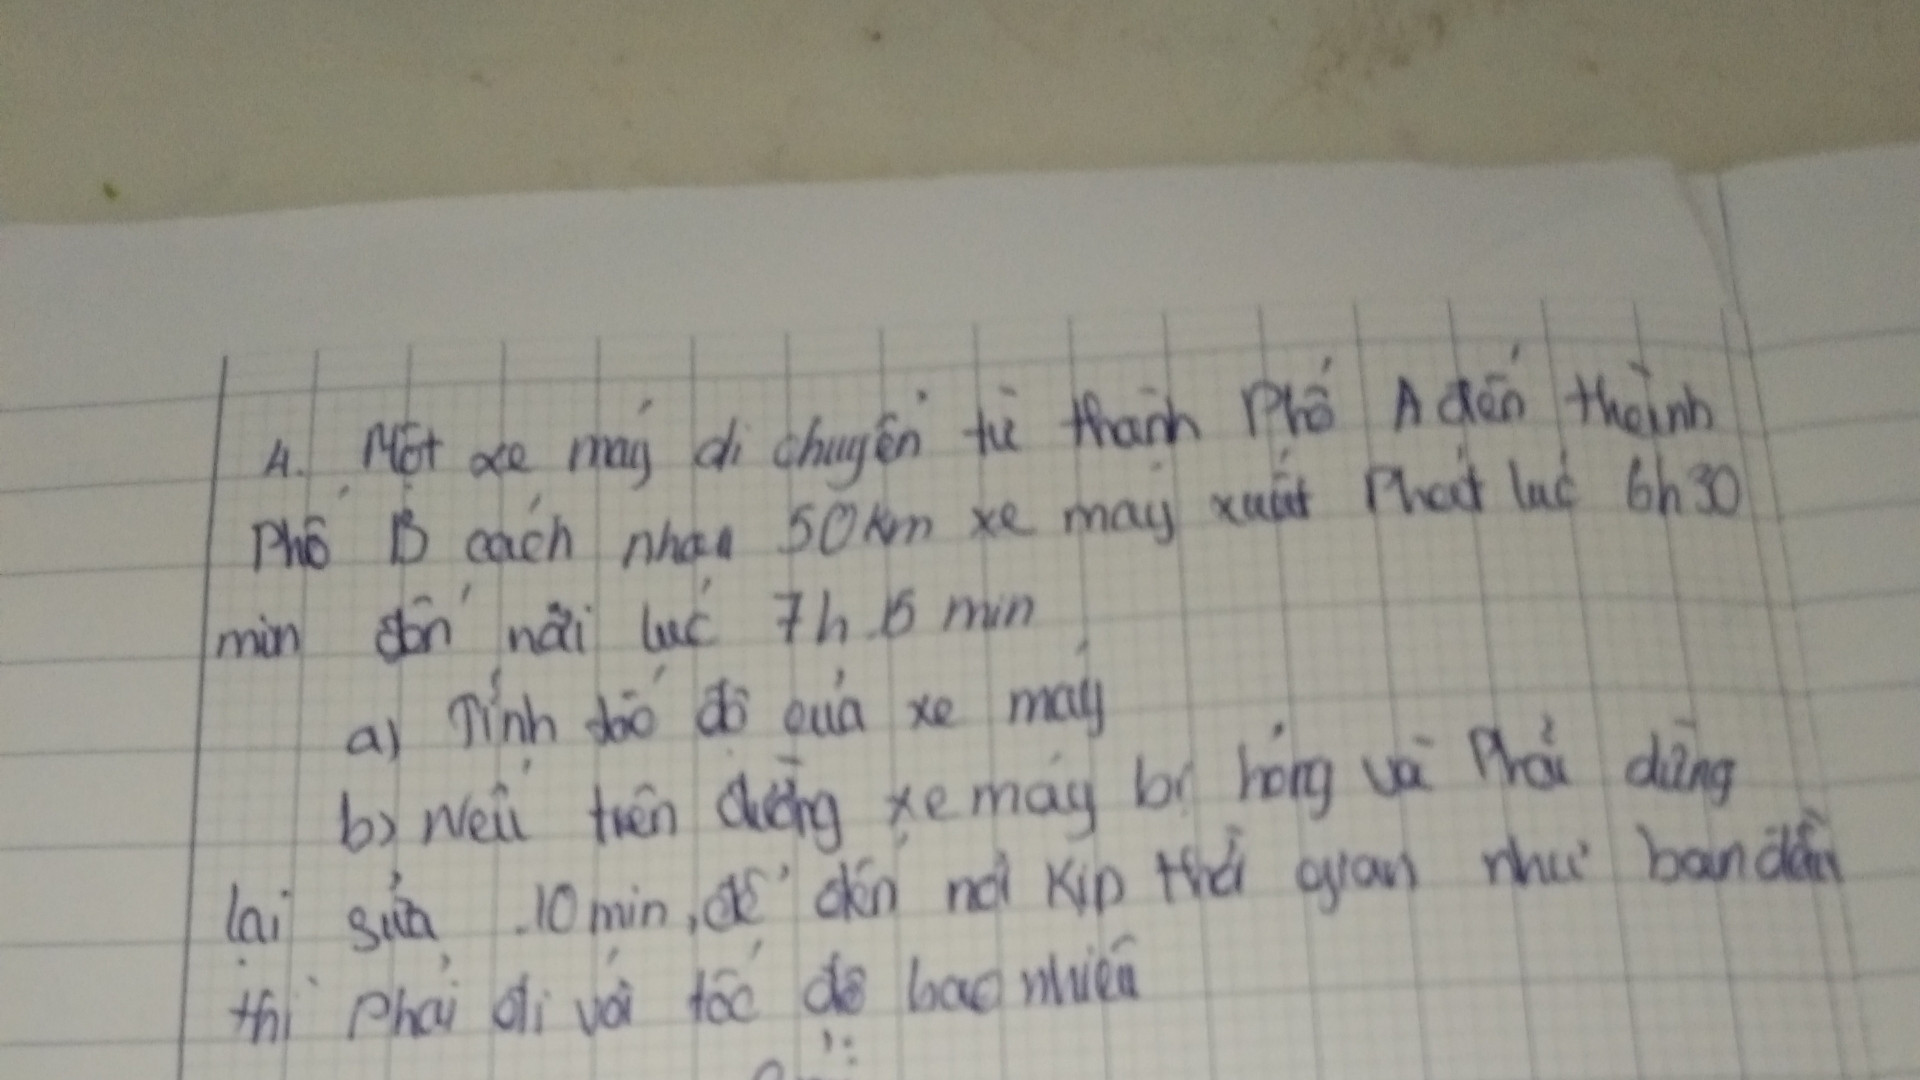 4. Một xe máy di chuyển từ thành Phố A đến thành
Phố B cách nhau 50 km xe máy xuất Phát lúc 6h30
min đến nơi lúc 7h 15 min
a) Tính tốc độ của xe máy
b) Nếu trên đường xe máy bị hỏng và Phải dừng
lại sửa 10 min, để đến nơi kịp thời gian như ban đầu
thì Phải đi với tốc độ bao nhiêu